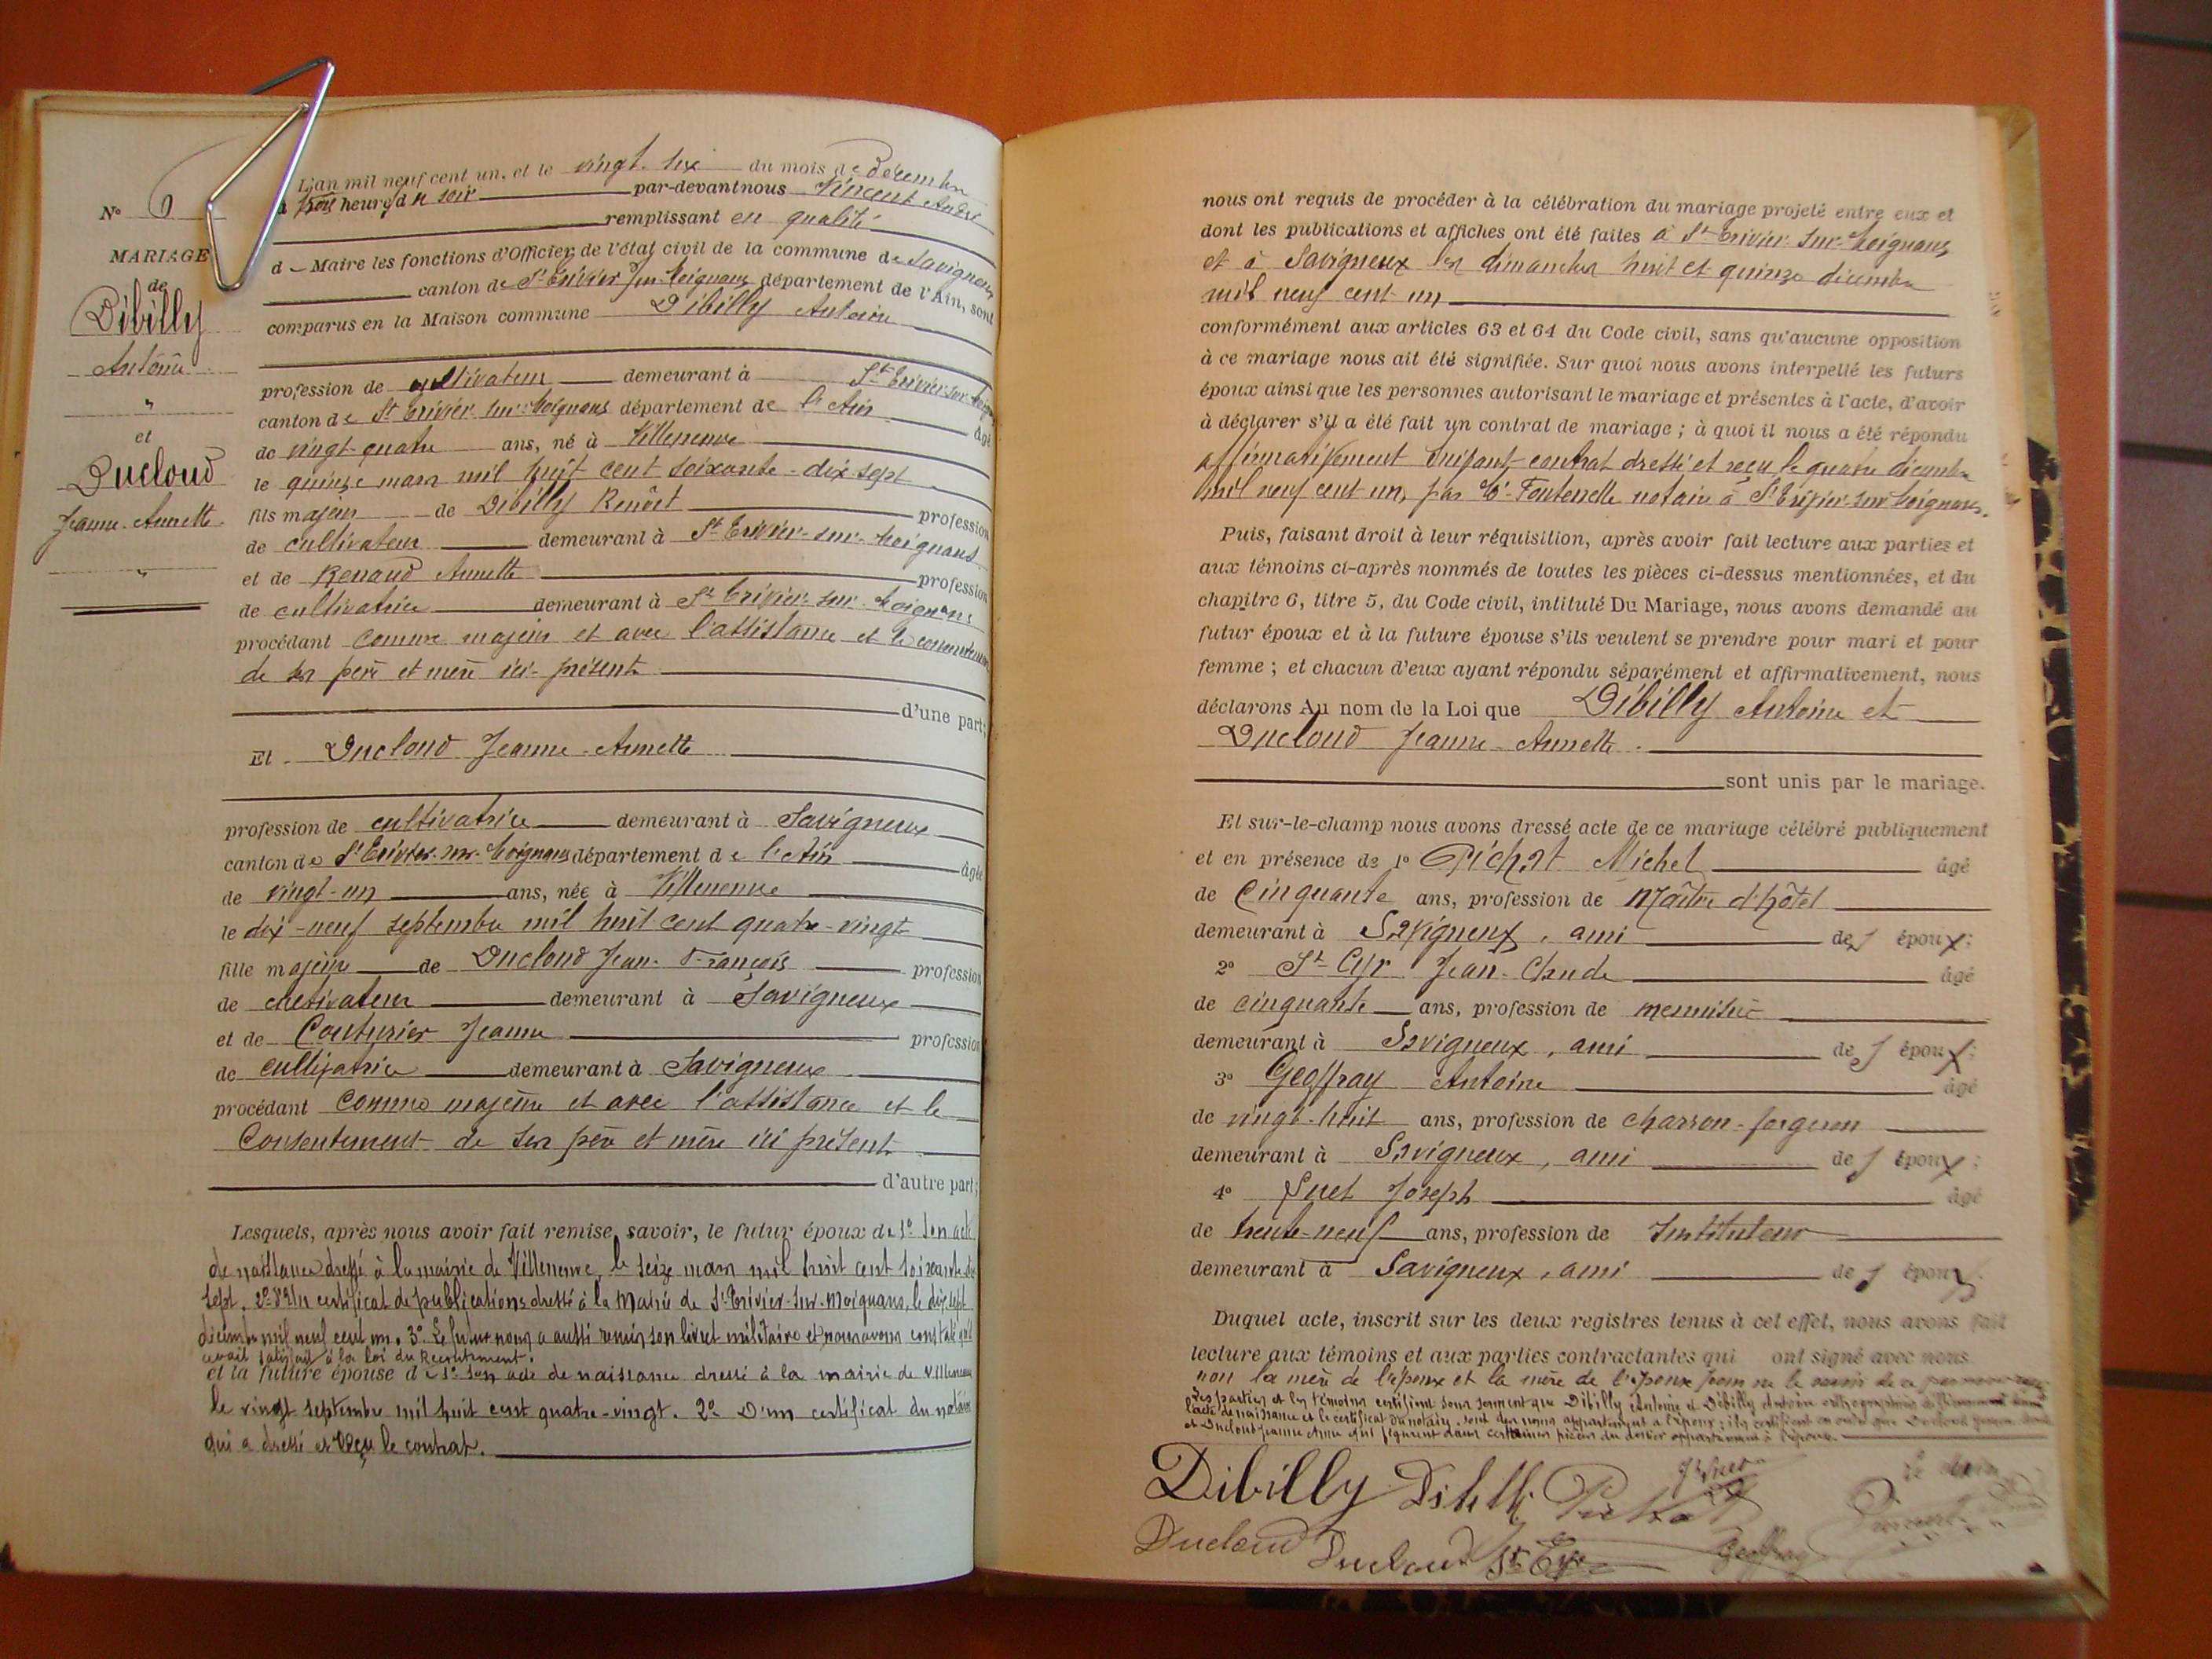 N° 6
MARIAGE
de
Dibilly
Antoine
"
et
Ducloud
Jeanne-Annette
"
L'an mil neuf cent un, et le vingt-six du mois de décembre
à trois heures du soir par-devant nous Vincent André
remplissant en qualité
d - Maire les fonctions d'Officier de l'état civil de la commune de Savigneux
canton de St Trivier sur Moignans département de l'Ain, sont
comparus en la Maison commune Dibilly Antoine
profession de cultivateur demeurant à St Trivier-sur-Moignans
canton de St Trivier sur Moignans département de l'Ain âgé
de vingt-quatre ans, né à Villeneuve
le quinze mars mil huit cent soixante-dix sept
fils majeur de Dibilly Benoît profession
de cultivateur demeurant à St Trivier-sur-Moignans
et de Renaud Annette profession
de cultivatrice demeurant à St Trivier-sur-Moignans
procédant comme majeur et avec l'assistance et le consentement
de ses père et mère ici-présents
d'une part;
Et Ducloud Jeanne-Annette
profession de cultivatrice demeurant à Savigneux
canton de St Trivier-sur-Moignans département de l'Ain âgée
de vingt-un ans, née à Villeneuve
le dix-neuf septembre mil huit cent quatre-vingt
fille majeure de Ducloud Jean-François profession
de cultivateur demeurant à Savigneux
et de Couturier Jeanne profession
de cultivatrice demeurant à Savigneux
procédant comme majeure et avec l'assistance et le
Consentement de ses père et mère ici présents
d'autre part;
Lesquels, après nous avoir fait remise, savoir, le futur époux de 1° Son acte
de naissance dressé à la mairie de Villeneuve, le seize mars mil huit cent soixante dix
sept. 2° D'un certificat de publications dressé à la Mairie de St-Trivier-sur-Moignans, le dix sept
décembre mil neuf cent un. 3° Le futur nous a aussi remis son livret militaire et nous avons constaté qu'il
avait satisfait à la loi du Recrutement.
et la future épouse de 1° son acte de naissance dressé à la mairie de Villeneuve
le vingt septembre mil huit cent quatre-vingt. 2° D'un certificat du notaire
qui a dressé et reçu le contrat.
nous ont requis de procéder à la célébration du mariage projeté entre eux et
dont les publications et affiches ont été faites à St Trivier-sur-Moignans
et à Savigneux les dimanches huit et quinze décembre
mil neuf cent un
conformément aux articles 63 et 64 du Code civil, sans qu'aucune opposition
à ce mariage nous ait été signifiée. Sur quoi nous avons interpellé les futurs
époux ainsi que les personnes autorisant le mariage et présentes à l'acte, d'avoir
à déclarer s'il a été fait un contrat de mariage ; à quoi il nous a été répondu
affirmativement suivant contrat dressé et reçu le quatre décembre
mil neuf cent un, par Me Fontenelle notaire à St Trivier-sur-Moignans.
Puis, faisant droit à leur réquisition, après avoir fait lecture aux parties et
aux témoins ci-après nommés de toutes les pièces ci-dessus mentionnées, et du
chapitre 6, titre 5, du Code civil, intitulé Du Mariage, nous avons demandé au
futur époux et à la future épouse s'ils veulent se prendre pour mari et pour
femme ; et chacun d'eux ayant répondu séparément et affirmativement, nous
déclarons Au nom de la Loi que Dibilly Antoine et
Ducloud Jeanne-Annette
sont unis par le mariage.
Et sur-le-champ nous avons dressé acte de ce mariage célébré publiquement
et en présence de 1° Pichat Michel âgé
de Cinquante ans, profession de Maître d'hôtel
demeurant à Savigneux, ami des époux;
2° St-Cyr Jean-Claude âgé
de cinquante ans, profession de menuisier
demeurant à Savigneux, ami des époux;
3° Geoffray Antoine âgé
de vingt-huit ans, profession de charron-forgeron
demeurant à Savigneux, ami des époux;
4° Suet Joseph âgé
de trente-neuf ans, profession de Instituteur
demeurant à Savigneux, ami des époux.
Duquel acte, inscrit sur les deux registres tenus à cet effet, nous avons fait
lecture aux témoins et aux parties contractantes qui ont signé avec nous
non la mère de l'époux et la mère de l'épouse pour ne le savoir de ce
Les parties et les témoins certifient sous serment que Dibilly Antoine et Débilly Antoine
l'acte de naissance et le certificat du notaire, sont des noms appartenant à l'époux ; ils certifient en outre que Ducloud Jeanne
et Ducloud Jeanne Anna qui figurent dans certaines pièces du dossier appartiennent à l'épouse.
Dibilly Pichat Le Maire
Ducloud Ducloud St Cyr Geoffray Vincent